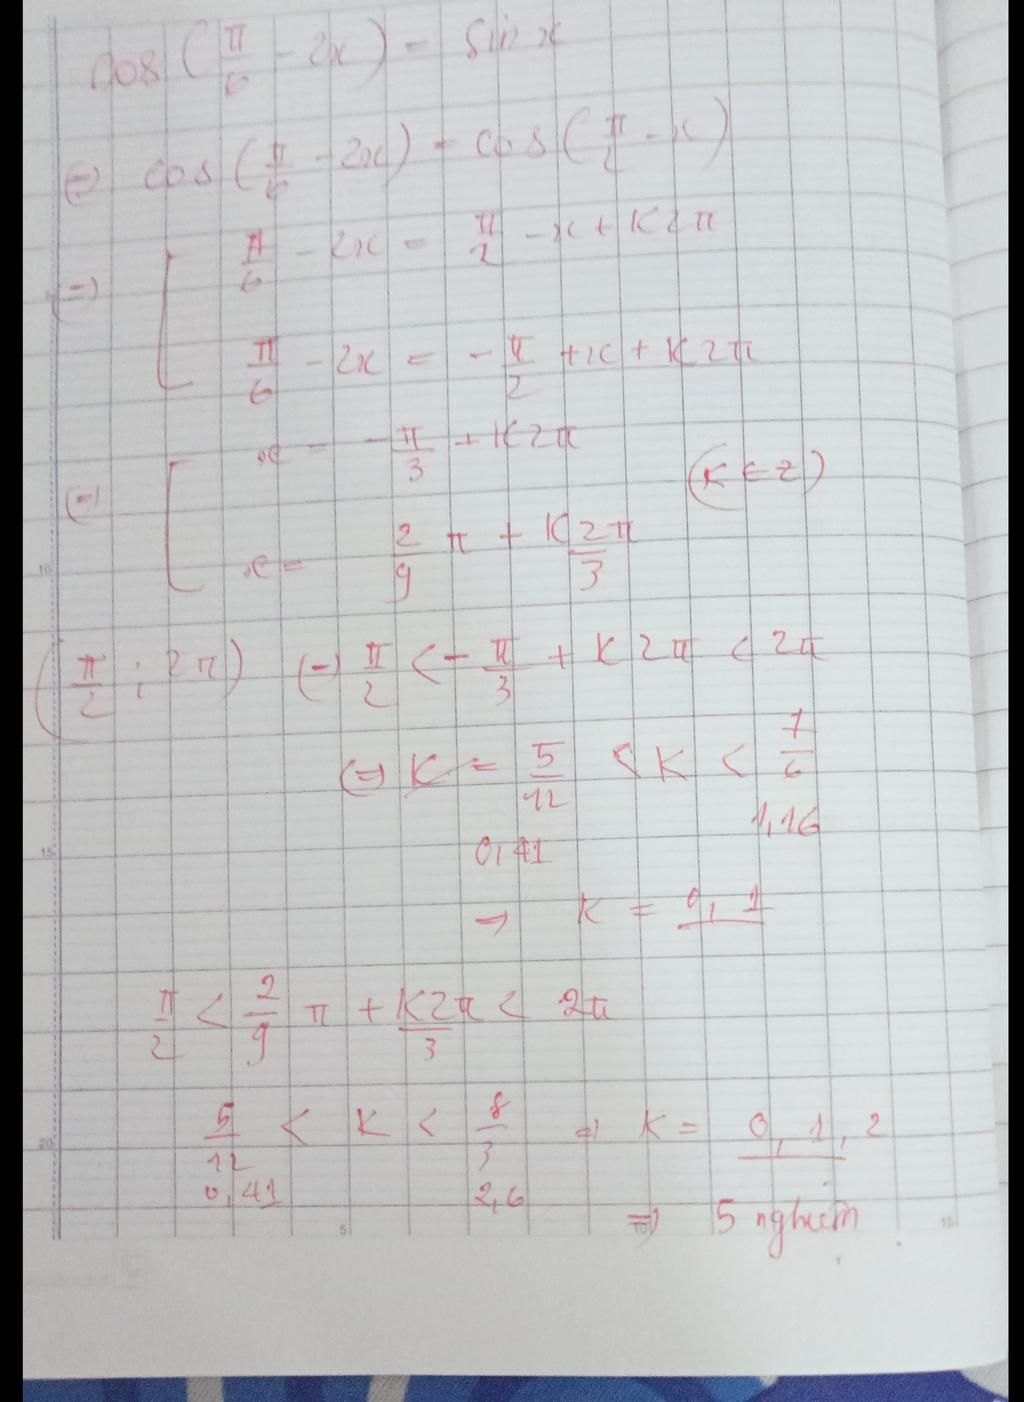 cos(π/6 - 2x) = sin x
(=) cos(π/6 - 2x) = cos(π/2 - x)
(=) [ π/6 - 2x = π/2 - x + K2π
π/6 - 2x = -π/2 + x + K2π
(=) [ x = -π/3 + K2π (K ∈ Z)
x = 2/9 π + K2π/3
(π/2 ; 2π) (=) π/2 < -π/3 + K2π < 2π
(=) K = 5/12 < K < 7/6
0,41 1,16
=> K = 0, 1
π/2 < 2/9 π + K2π/3 < 2π
5/12 < K < 8/3 => K = 0, 1, 2
0,41 2,6
=> 5 nghiệm
10
15
20
5
10
15